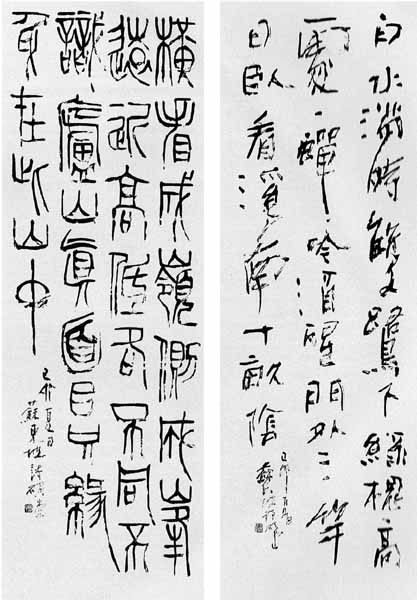 白水滿時雙鷺下綠槐高
處一蟬吟酒醒門外三竿
日臥看溪南十畝陰
己卯
橫看成嶺側成峯
遠近高低各不同不
識廬山真面目只緣
身在此山中
己卯夏日
蘇東坡詩